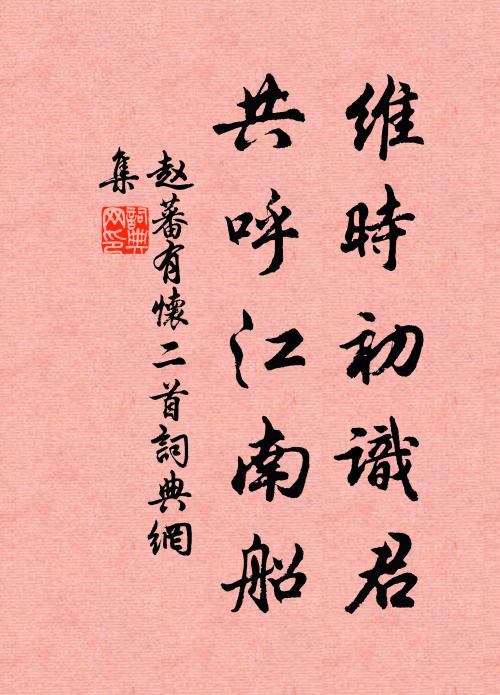 維時初識君
共呼江南船
赵蕃有懷二首詞典網
集
詞典网印